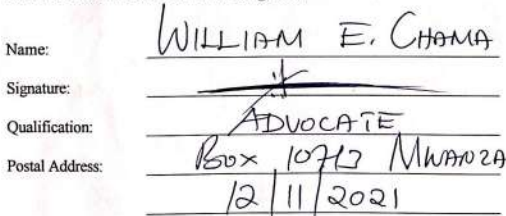 Name: WILLIAM E. CHAMA
Signature:
Qualification: ADVOCATE
Postal Address: BOX 10713 MWANZA
12/11/2021